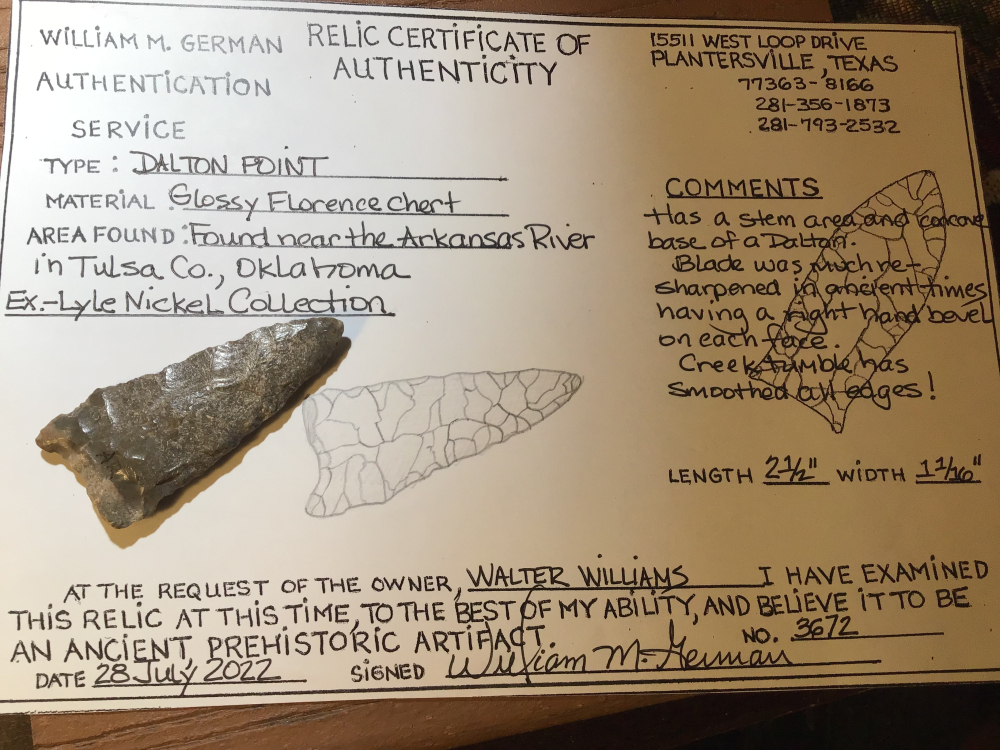 WILLIAM M. GERMAN
AUTHENTICATION
SERVICE
RELIC CERTIFICATE OF
AUTHENTICITY
15511 WEST LOOP DRIVE
PLANTERSVILLE, TEXAS
77363-8166
281-356-1873
281-793-2532
TYPE: DALTON POINT
MATERIAL: Glossy Florence chert
AREA FOUND: Found near the Arkansas River
in Tulsa Co., Oklahoma
Ex.-Lyle Nickel Collection
COMMENTS
Has a stem area and concave
base of a Dalton.
Blade was much re-
sharpened in ancient times
having a right hand bevel
on each face.
Creek tumble has
smoothed all edges!
LENGTH 2 1/2" WIDTH 1 1/16"
AT THE REQUEST OF THE OWNER, WALTER WILLIAMS I HAVE EXAMINED
THIS RELIC AT THIS TIME, TO THE BEST OF MY ABILITY, AND BELIEVE IT TO BE
AN ANCIENT, PREHISTORIC ARTIFACT. NO. 3672
DATE 28 July 2022 SIGNED William M. German